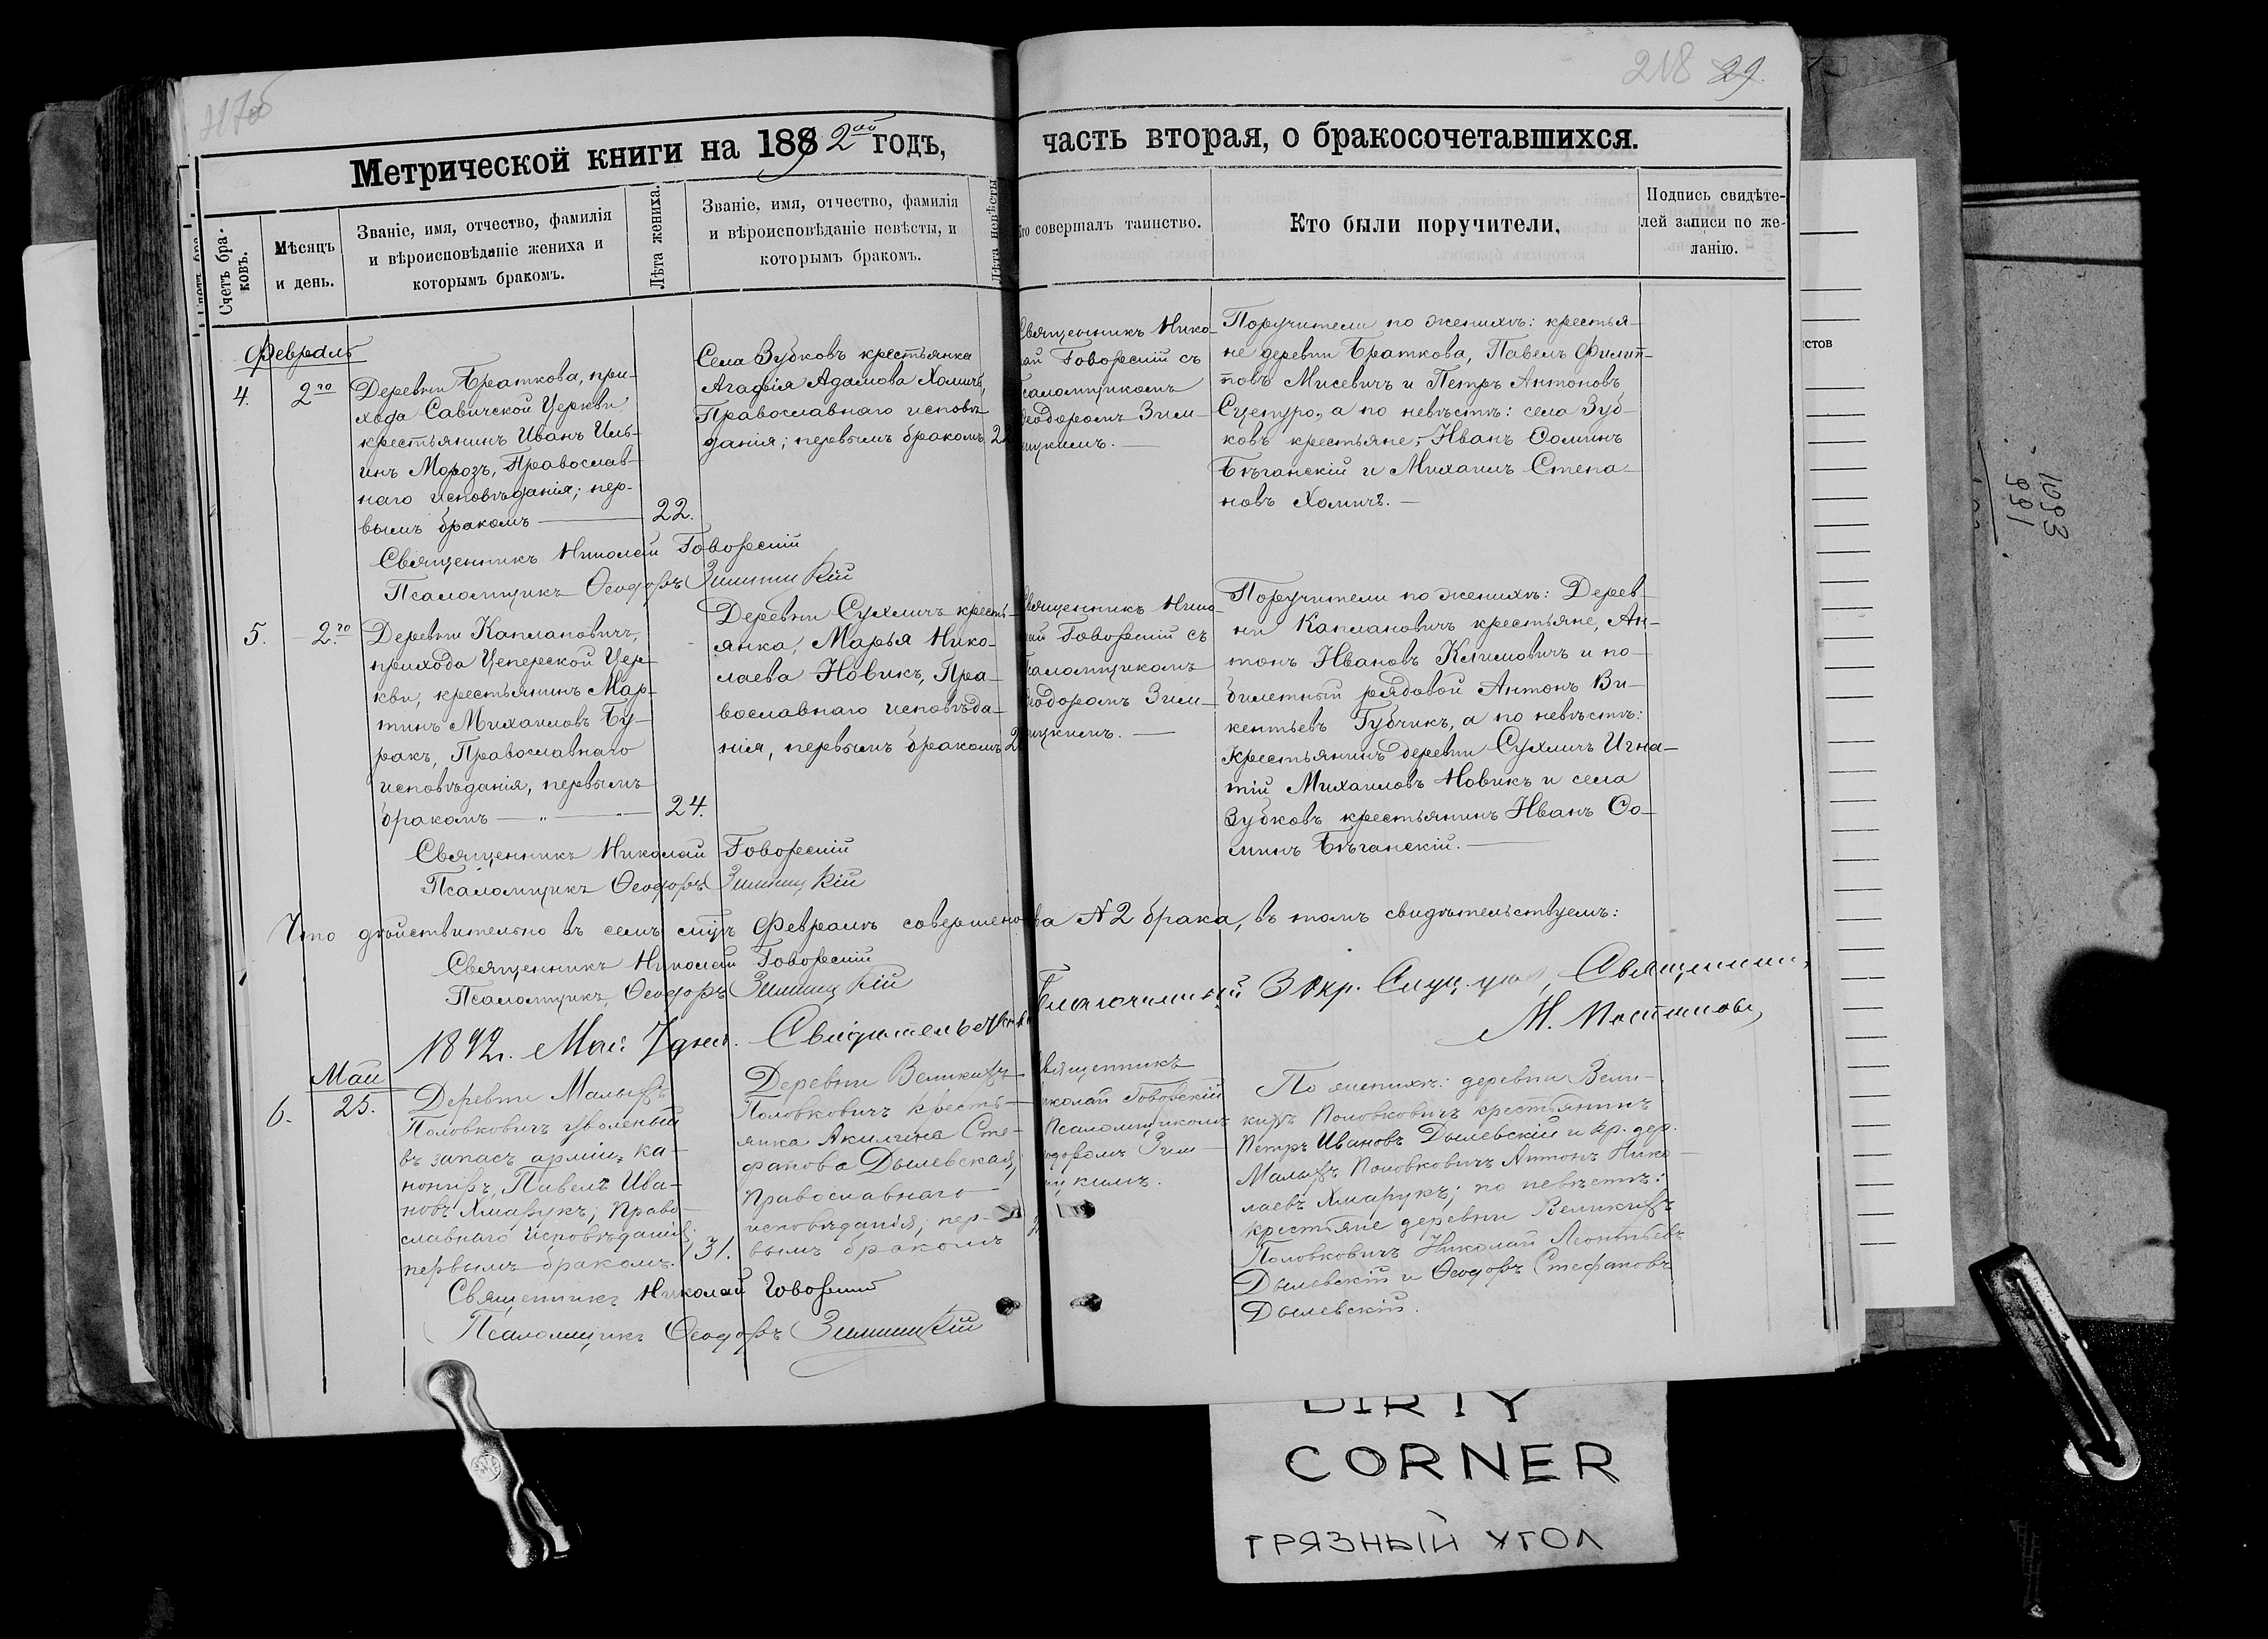 217об
218 29.
Метрической книги на 1892ой годъ,
часть вторая, о бракосочетавшихся.
Счетъ бра-
ковъ.
Мѣсяцъ
и день.
Званіе, имя, отчество, фамилія
и вѣроисповѣданіе жениха и
которымъ бракомъ.
Лѣта жениха.
Званіе, имя, отчество, фамилія
и вѣроисповѣданіе невѣсты, и
которымъ бракомъ.
Лѣта невѣсты
совершалъ таинство.
Кто были поручители,
Подпись свидѣте-
лей записи по же-
ланію.
Февраль
4.
2го
Деревни Браткова, при-
хода Савичской Церкви
крестьянинъ Иванъ Иль-
инъ Морозъ, Православ-
наго исповѣданія; пер-
вымъ бракомъ —
22.
Села Зубковъ крестьянка
Агафія Адамова Холичъ,
Православнаго исповѣ-
данія; первымъ бракомъ
Священникъ Нико-
лай Говорскій съ
псаломщикомъ
Ѳеодоромъ Зим-
ницкимъ. —
Поручители по женихѣ: крестья-
не деревни Браткова, Павелъ Филип-
повъ Мисевичъ и Петръ Антоновъ
Сцепуро, а по невѣстѣ: села Зуб-
ковъ крестьяне, Иванъ Ѳоминъ
Бѣганскій и Михаилъ Степа-
новъ Холичъ. —
Священникъ Николай Говорскій
Псаломщикъ Ѳеодоръ Зимницкій
5.
2го
Деревни Каплановичъ,
прихода Цеперской Цер-
кви, крестьянинъ Мар-
тинъ Михаиловъ Бу-
ракъ, Православнаго
исповѣданія, первымъ
бракомъ — „ —
24.
Деревни Сухличъ кресть-
янка, Марья Нико-
лаева Новикъ, Пра-
вославнаго исповѣда-
нія, первымъ бракомъ
Священникъ Нико-
лай Говорскій съ
псаломщикомъ
Ѳеодоромъ Зим-
ницкимъ. —
Поручители по женихѣ: Дерев-
ни Каплановичъ крестьяне, Ан-
тонъ Ивановъ Климовичъ и по-
билетный рядовой Антонъ Ви-
кентьевъ Губчикъ, а по невѣстѣ:
Крестьянинъ деревни Сухличъ Игна-
тій Михаиловъ Новикъ и села
Зубковъ крестьянинъ Иванъ Ѳо-
минъ Бѣганскій. —
Священникъ Николай Говорскій
Псаломщикъ Ѳеодоръ Зимницкій
Что дѣйствительно въ семъ мцѣ Февралѣ совершено два № 2 брака, въ томъ свидѣтельствуемъ:
Священникъ Николай Говорскій
Псаломщикъ Ѳеодоръ Зимницкій
1892г. Мая 7 дня. Свидѣтельствовалъ Благочинный 3 окр. Слуц. уѣзда, Священникъ
М.
Май
6.
25.
Деревни Малыхъ
Половковичъ уволеный
въ запасъ арміи, ка-
нониръ, Павелъ Ива-
новъ Хмарукъ; Право-
славнаго исповѣданія;
первымъ бракомъ.
31.
Деревни Великихъ
Половковичъ кресть-
янка Акилина Сте-
фанова Дылевская;
Православнаго
исповѣданія; пер-
вымъ бракомъ
Священникъ
Николай Говорскій
Псаломщикомъ
Ѳеодоромъ Зим-
ницкимъ.
По женихѣ: деревни Вели-
кихъ Половковичъ крестьянинъ
Петръ Ивановъ Дылевскій и кр. дер.
Малыхъ Половковичъ Антонъ Нико-
лаевъ Хмарукъ; по невѣстѣ:
крестьяне деревни Великихъ
Половковичъ Николай Леонтьевъ
Дылевскій и Ѳеодоръ Стефановъ
Дылевскій.
Священникъ Николай Говорскій
Псаломщикъ Ѳеодоръ Зимницкій
стов
1093
991
DIRTY
CORNER
ГРЯЗНЫЙ УГОЛ